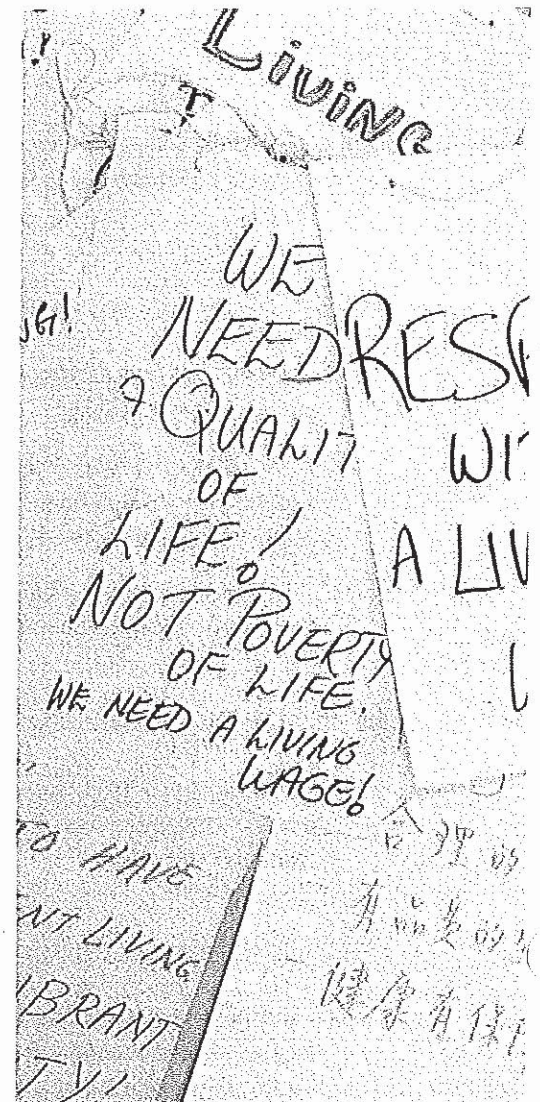 Living
WE
NEED
A QUALIT
OF
LIFE!
NOT POVERTY
OF LIFE.
WE NEED A LIVING
WAGE!
RESP
WIT
A LIV
TO HAVE
ENT LIVING
IBRANT
ITY!
合理的
有品质的
健康有保